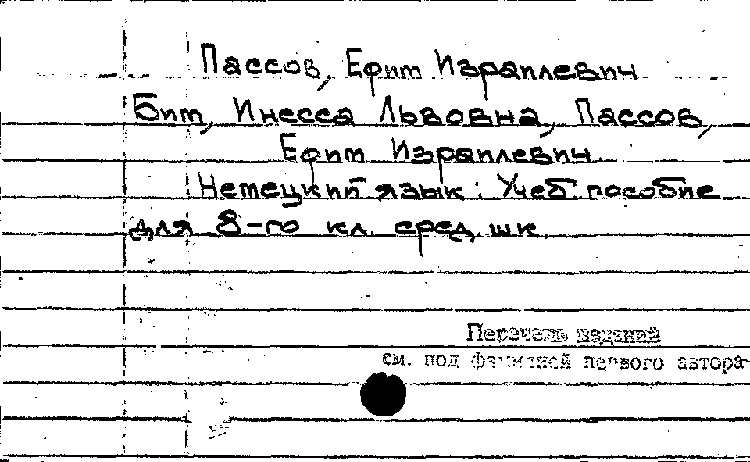 Пассов, Ефим Израилевич
Бим, Инесса Львовна, Пассов,
Ефим Израилевич
Немецкий язык: Учеб. пособие
для 8-го кл. сред. шк.
Перечень изданий
см. под фамилией первого автора